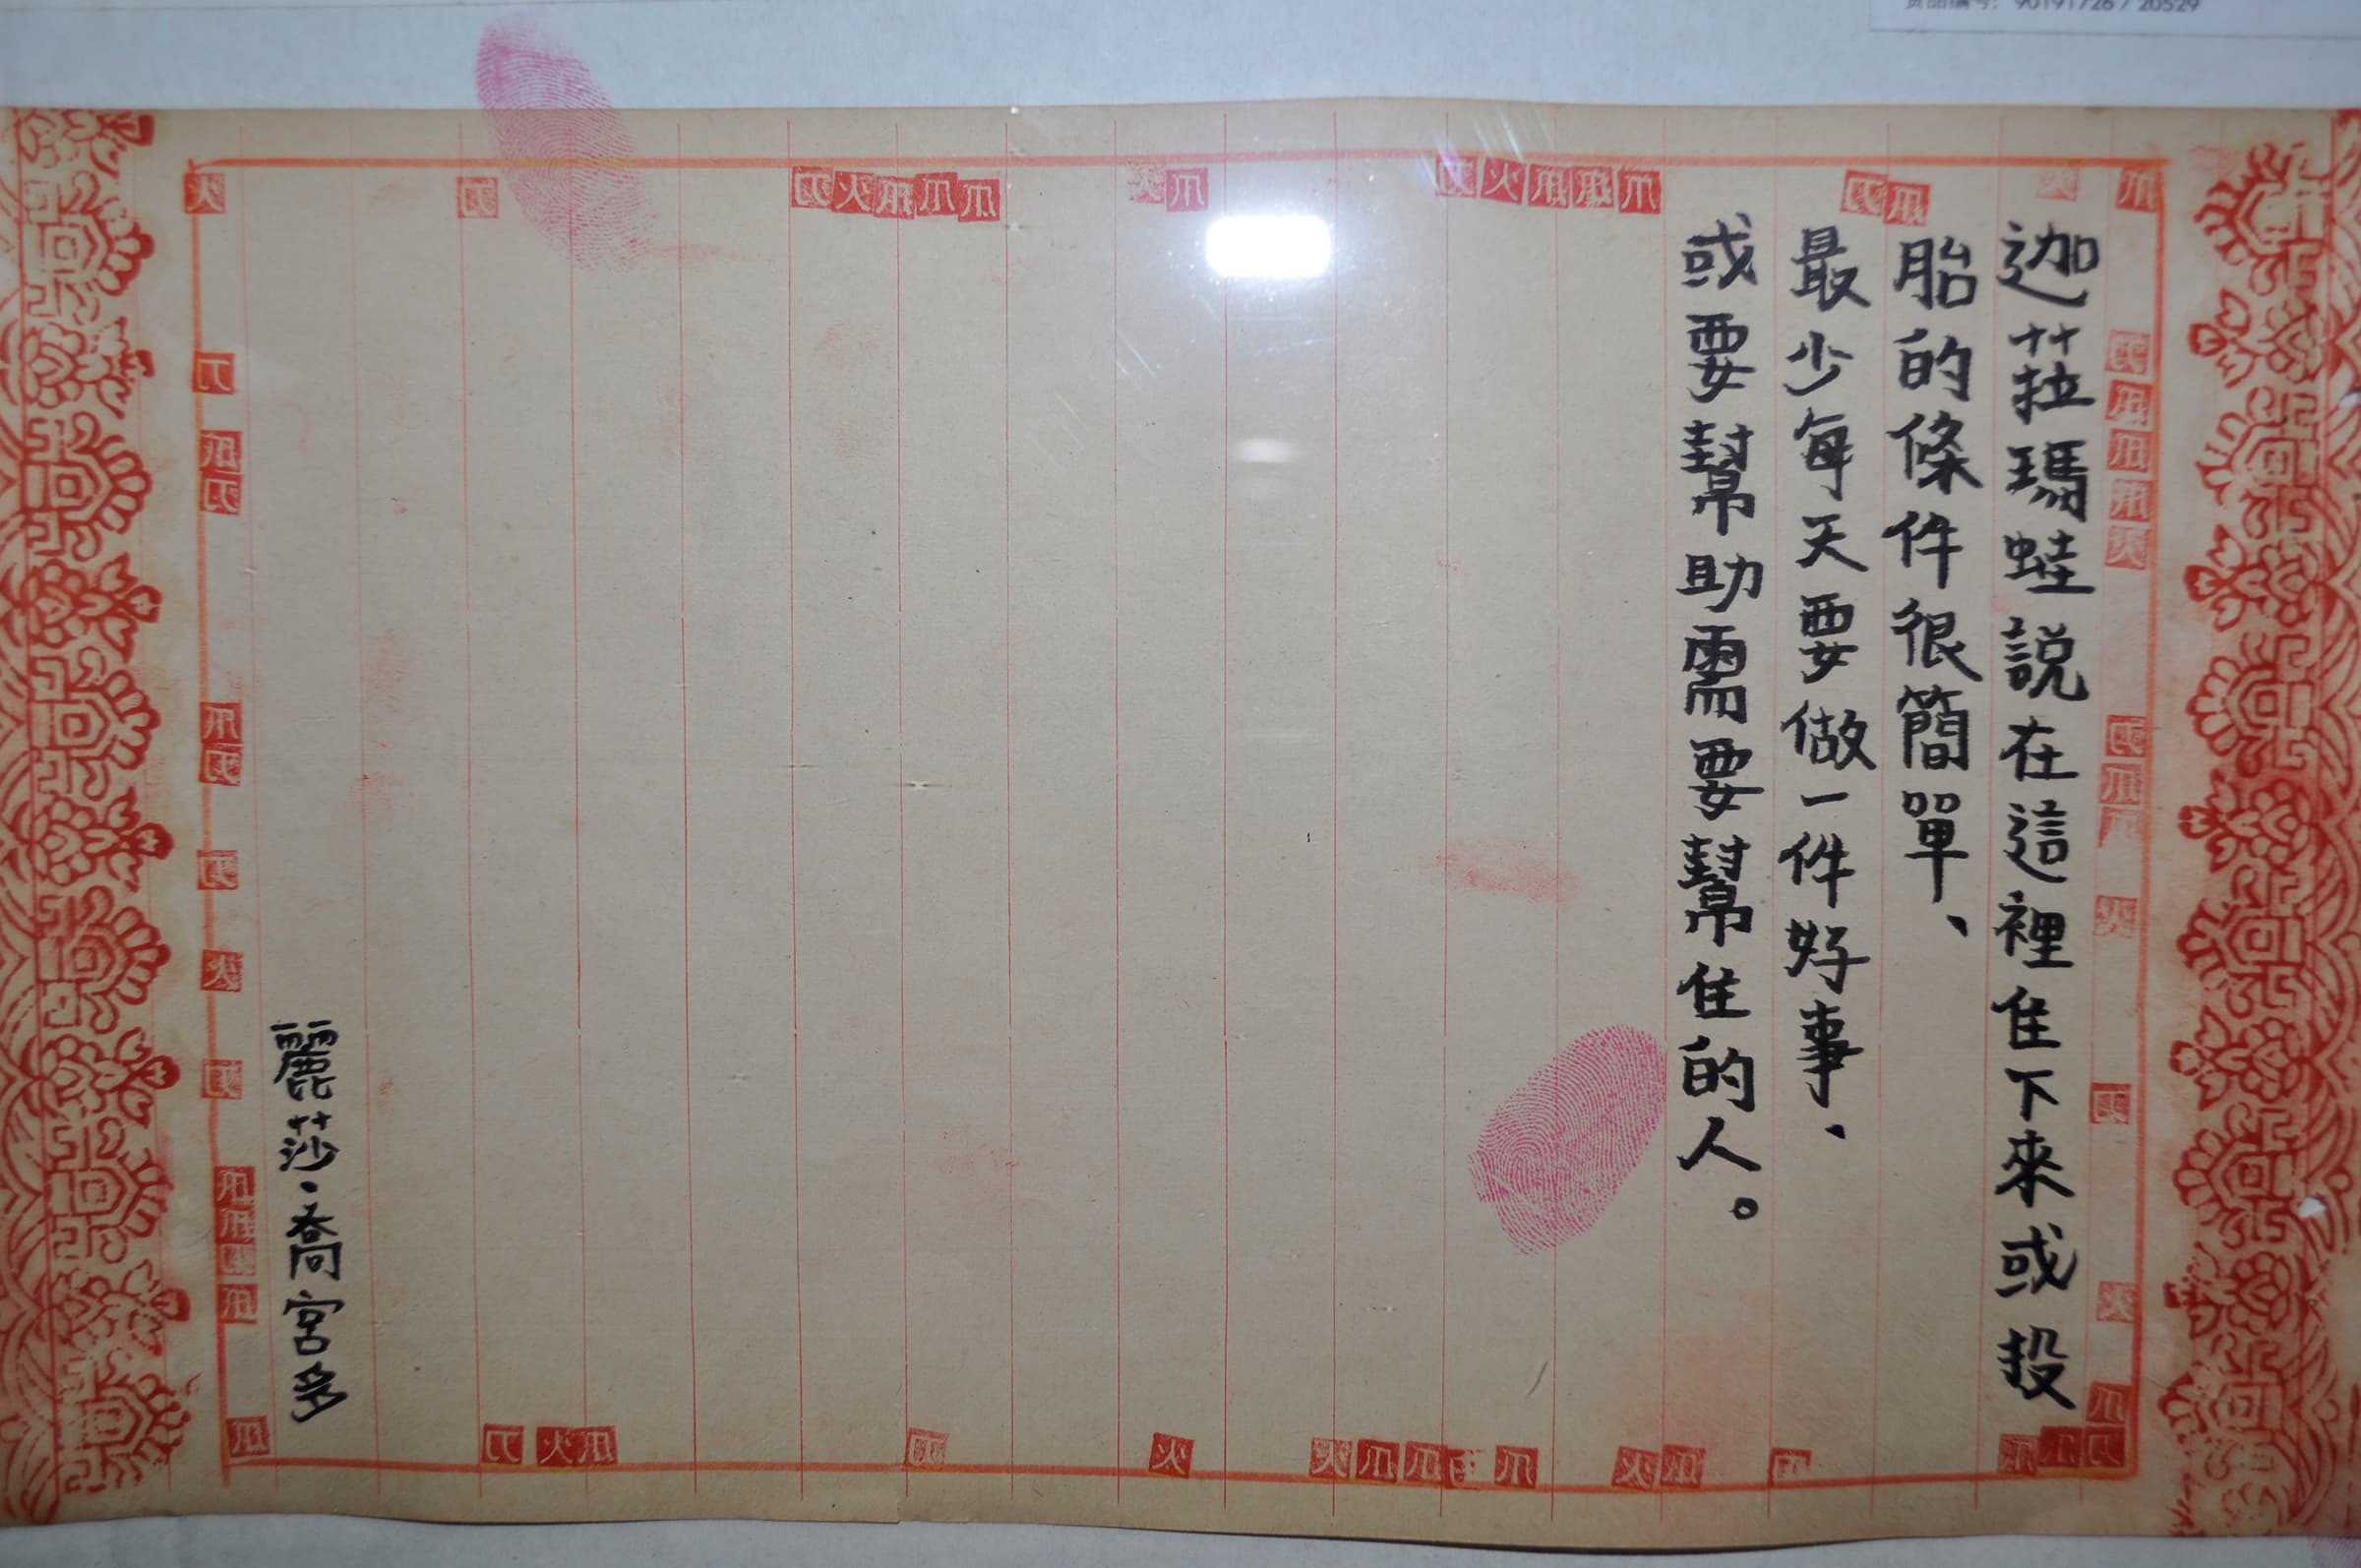 迦菈瑪蛙說在這裡住下來或投
胎的條件很簡單、
最少每天要做一件好事、
或要幫助需要幫住的人。
麗莎·喬宮多
货品编号: 90191726 / 20529